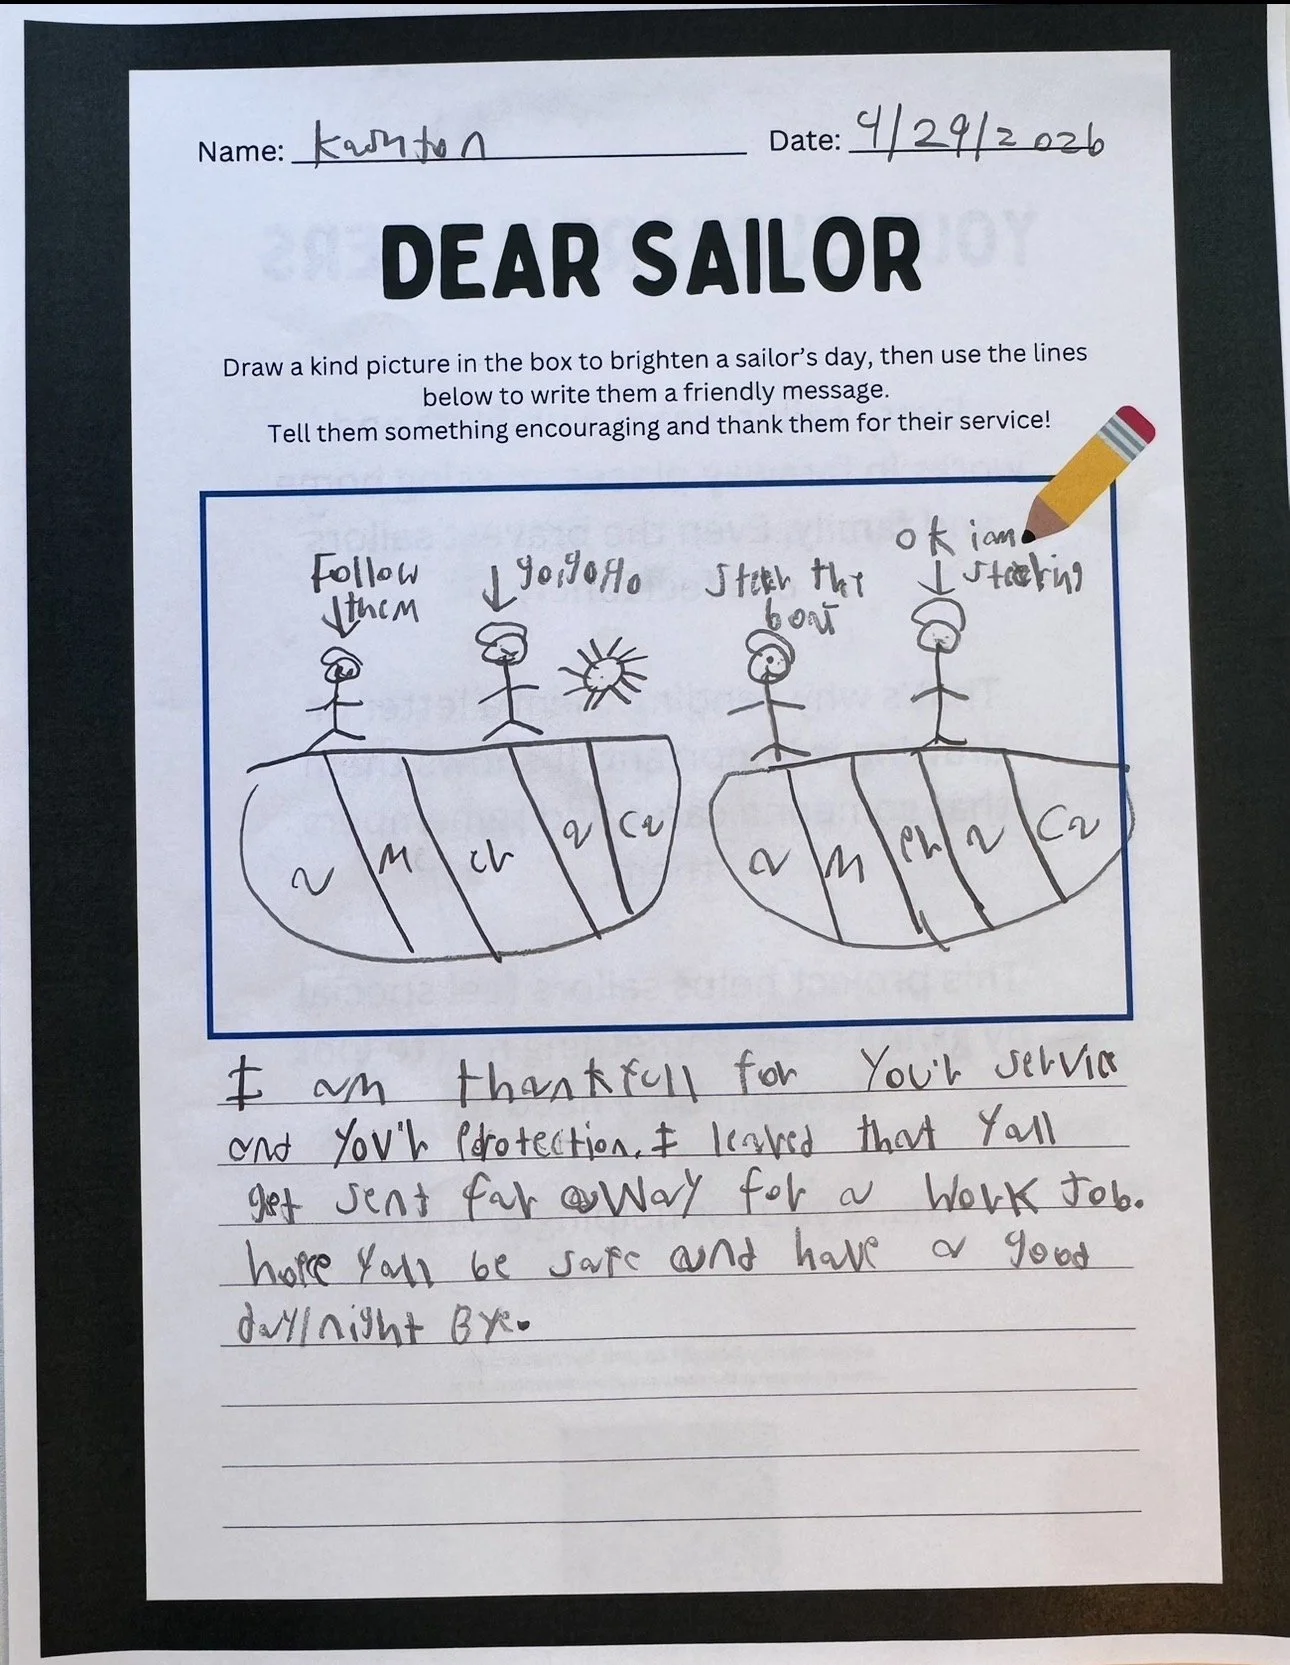 Name: Kashton Date: 4/29/2026
DEAR SAILOR
Draw a kind picture in the box to brighten a sailor's day, then use the lines
below to write them a friendly message.
Tell them something encouraging and thank them for their service!
ok iam
Follow go,go,go Steer the steering
them boat
a M ch a Ca a M ch a Ca
I am thankfull for You'r service
and You'r Protection. I learned that Yall
get sent far away for a Work Job.
hope Yall be safe and have a good
day/night Bye.